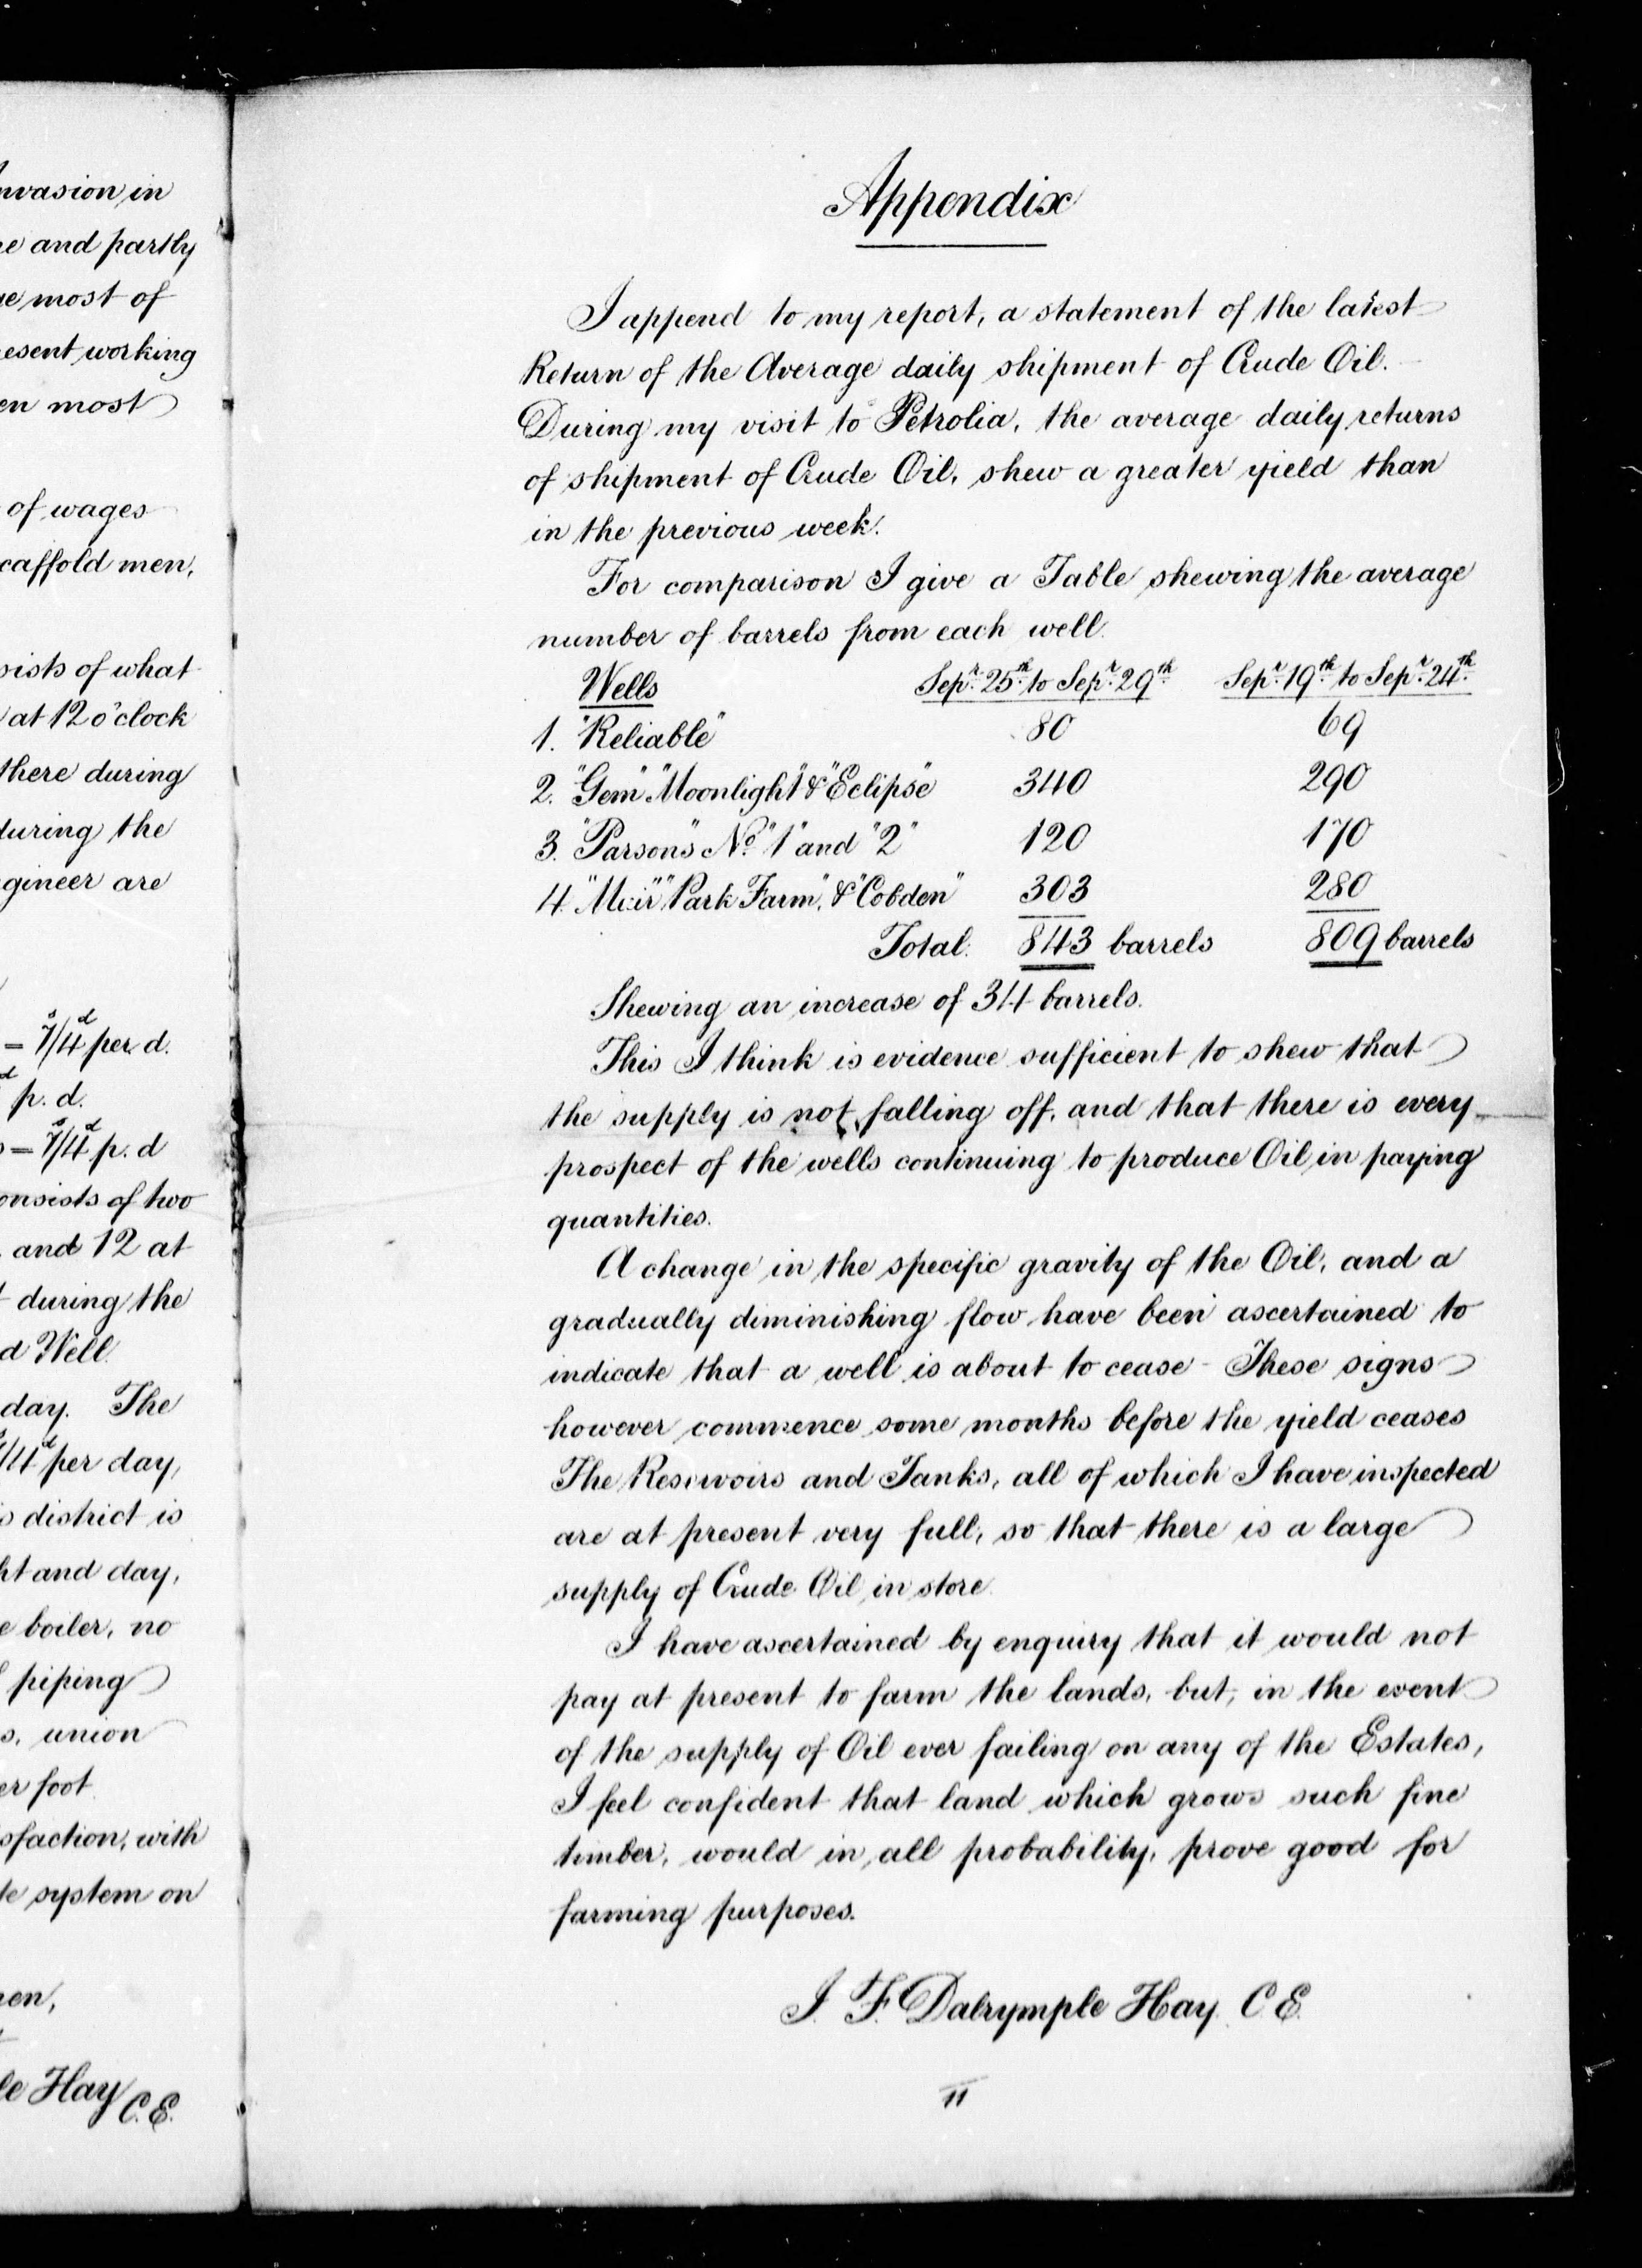 nvasion in
e and partly
e most of
esent working
en most
of wages
caffold men,
sists of what
at 12 o'clock
there during
during the
gineer are
= 7s/4d per d.
d p. d.
= 7s/4d p. d
onsists of two
and 12 at
during the
d Well.
day. The
/4d per day,
s district is
ht and day,
e boiler, no
piping
s, union
er foot.
sfaction, with
te system on
en,
le Hay C.E.
Appendix
I append to my report, a statement of the latest
Return of the Average daily shipment of Crude Oil.
During my visit to Petrolia, the average daily returns
of shipment of Crude Oil, shew a greater yield than
in the previous week.
For comparison I give a Table shewing the average
number of barrels from each well.
Wells Sepr. 25th to Sepr. 29th Sepr. 19th to Sepr. 24th
1. "Reliable" 80 69
2. "Gem" "Moonlight" & "Eclipse" 340 290
3. "Parsons" No. "1" and "2" 120 170
4. "Muir" "Park Farm", & "Cobden" 303 280
Total. 843 barrels 809 barrels
Shewing an increase of 34 barrels.
This I think is evidence sufficient to shew that
the supply is not falling off, and that there is every
prospect of the wells continuing to produce Oil in paying
quantities.
A change in the specific gravity of the Oil, and a
gradually diminishing flow have been ascertained to
indicate that a well is about to cease - These signs
however commence some months before the yield ceases
The Resivoirs and Tanks, all of which I have inspected
are at present very full, so that there is a large
supply of Crude Oil in store.
I have ascertained by enquiry that it would not
pay at present to farm the lands, but, in the event
of the supply of Oil ever failing on any of the Estates,
I feel confident that land which grows such fine
timber, would in all probability, prove good for
farming purposes.
J. F. Dalrymple Hay. C.E.
11